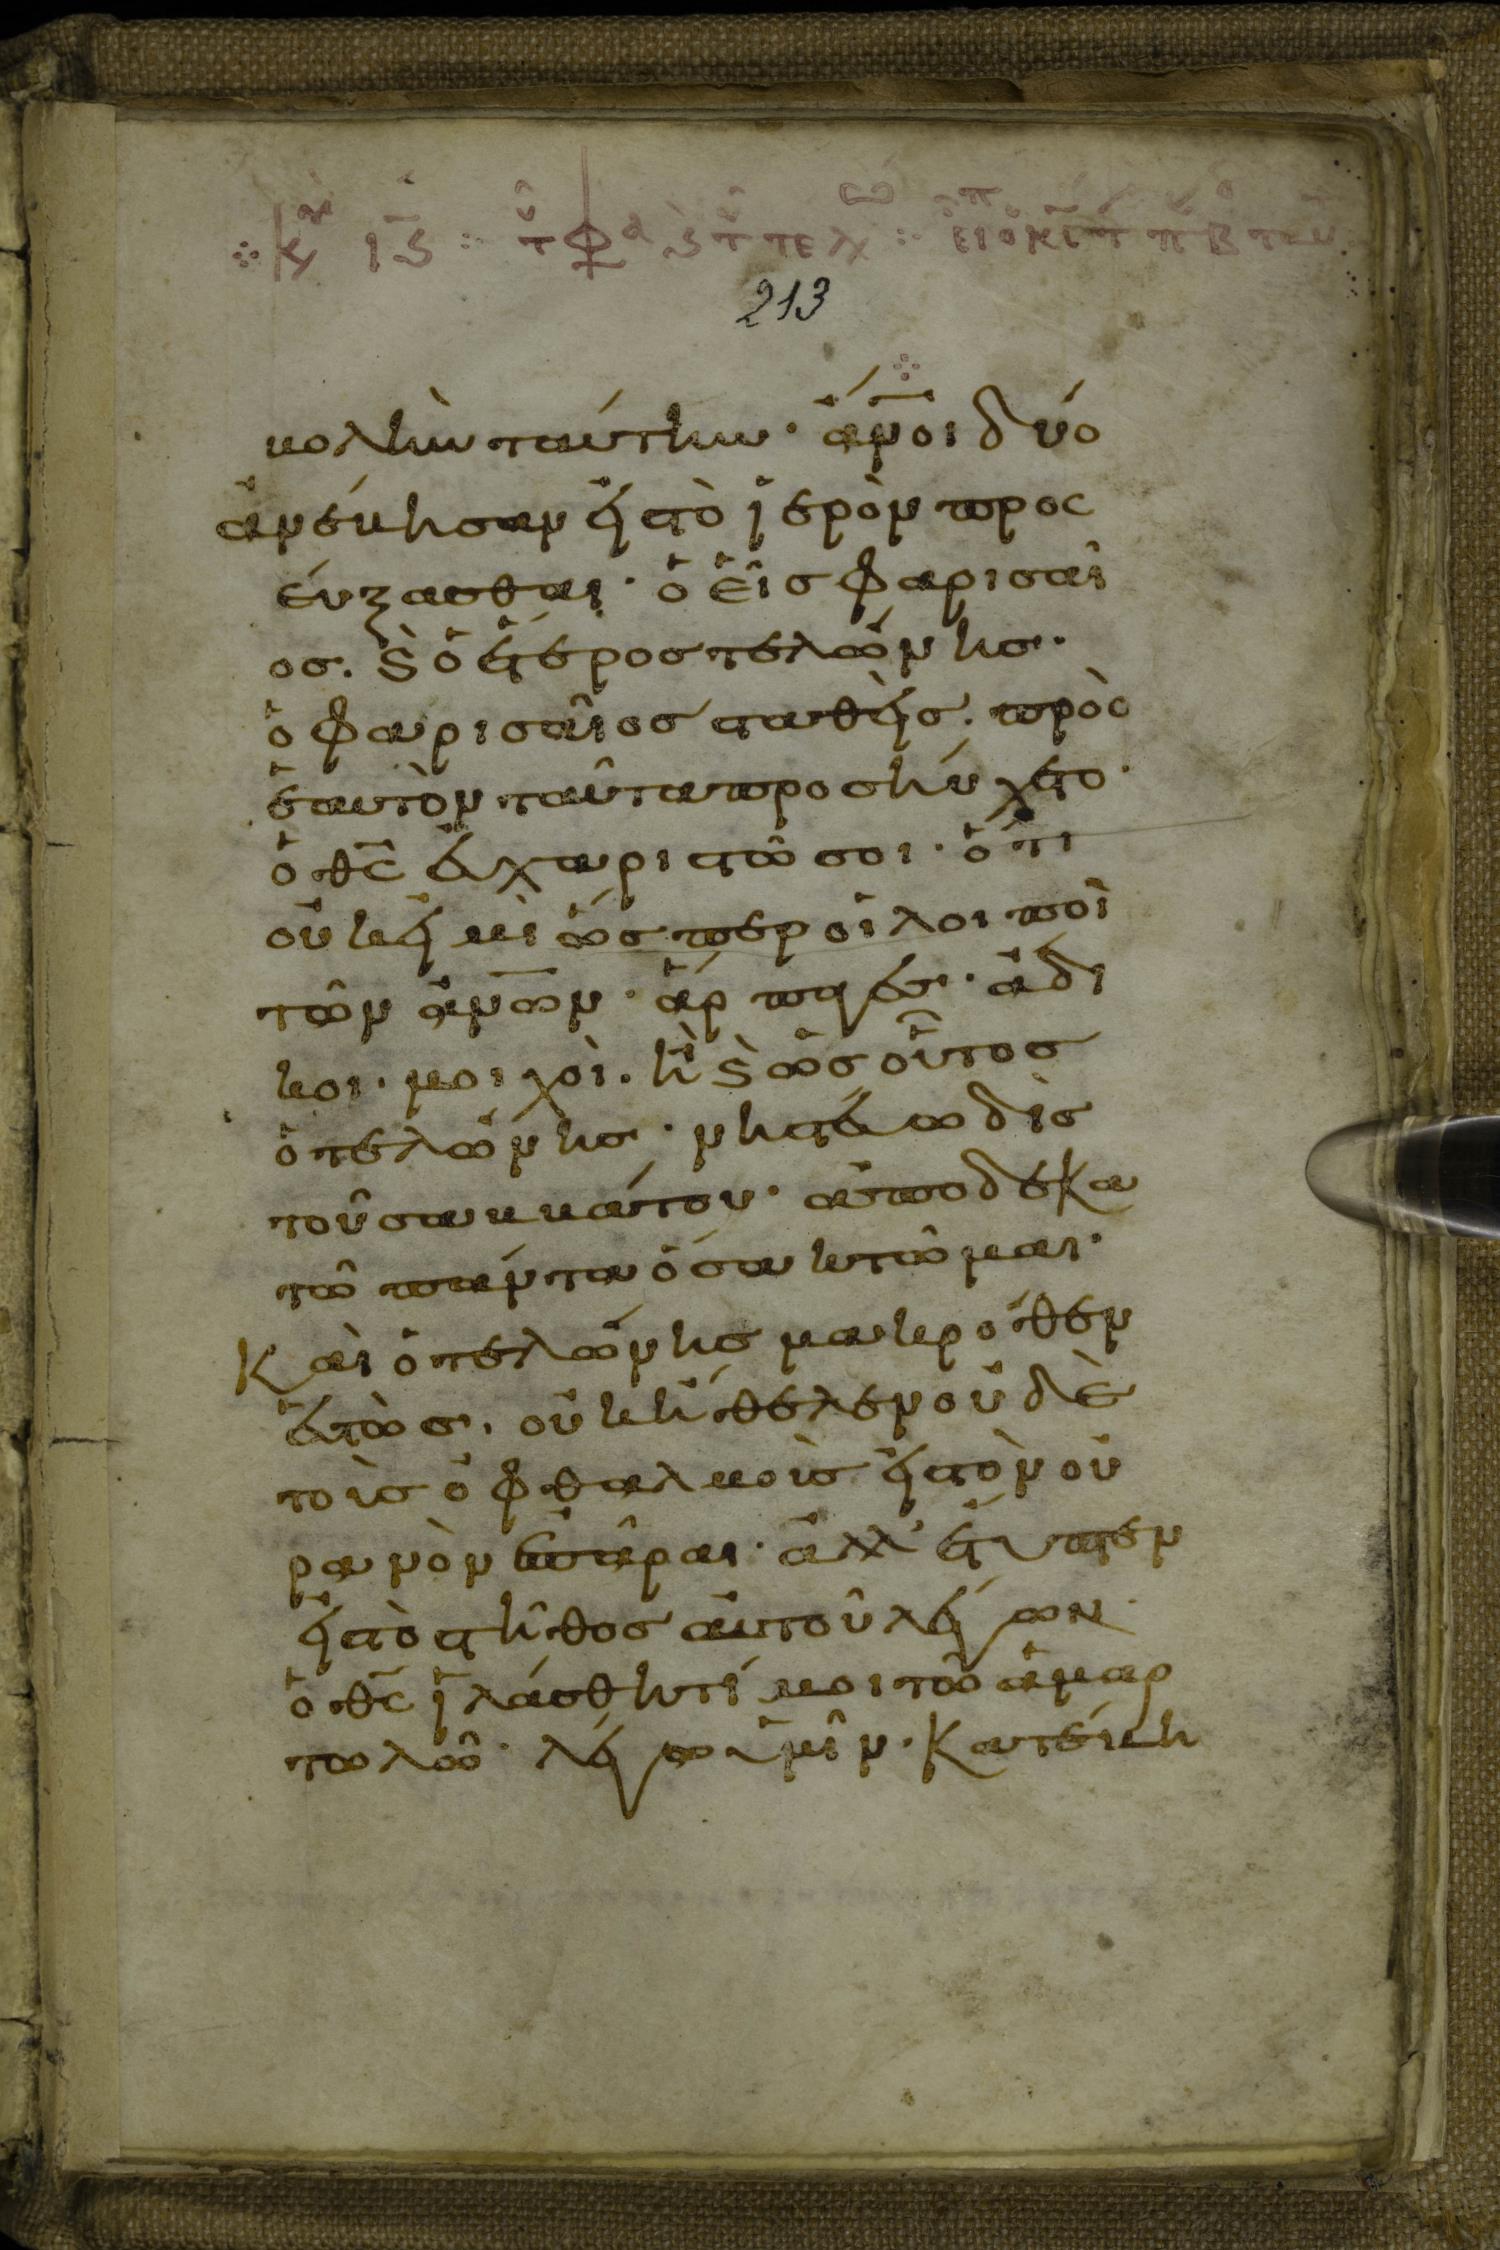 213
κολὴν ταύτην· ἄν̅οι δύο
ἀνέκησαν εἰς τὸ ἱερὸν προς
εύξασθαι· ὁ εἷς φαρισαῖ
ος. ϗ ὁ ἕτερος τελώνης·
ὁ φαρισαῖος σταθεὶς. πρὸς
ἑαυτὸν ταῦτα προσηύχετο·
ὁ θς̅ εὐχαριστῶ σοι· ὅτι
οὐκ εἰμὶ ὥσπερ οἱ λοιποὶ
τῶν ἀν̅ων· ἅρπαγες· ἄδι
κοι· μοιχοὶ. ἢ ϗ ὡς οὗτος
ὁ τελώνης· νηστεύω δὶς
τοῦ σακκάτου· ἀποδεκα
τῶ πάντα ὅσα κτῶμαι·
Καὶ ὁ τελώνης μακρόθεν
ἑστὼς. οὐκ ἤθελεν οὐδὲ
τοὺς ὀφθαλμοὺς εἰς τὸν οὐ
ρανὸν ἐπᾶραι· ἀλλ' ἔτυπτεν
εἰς τὸ στῆθος αὐτοῦ λέγων·
ὁ θς̅ ἱλάσθητί μοι τῶ ἁμαρ
τωλῶ· λέγω ὑμῖν· Κατέκη